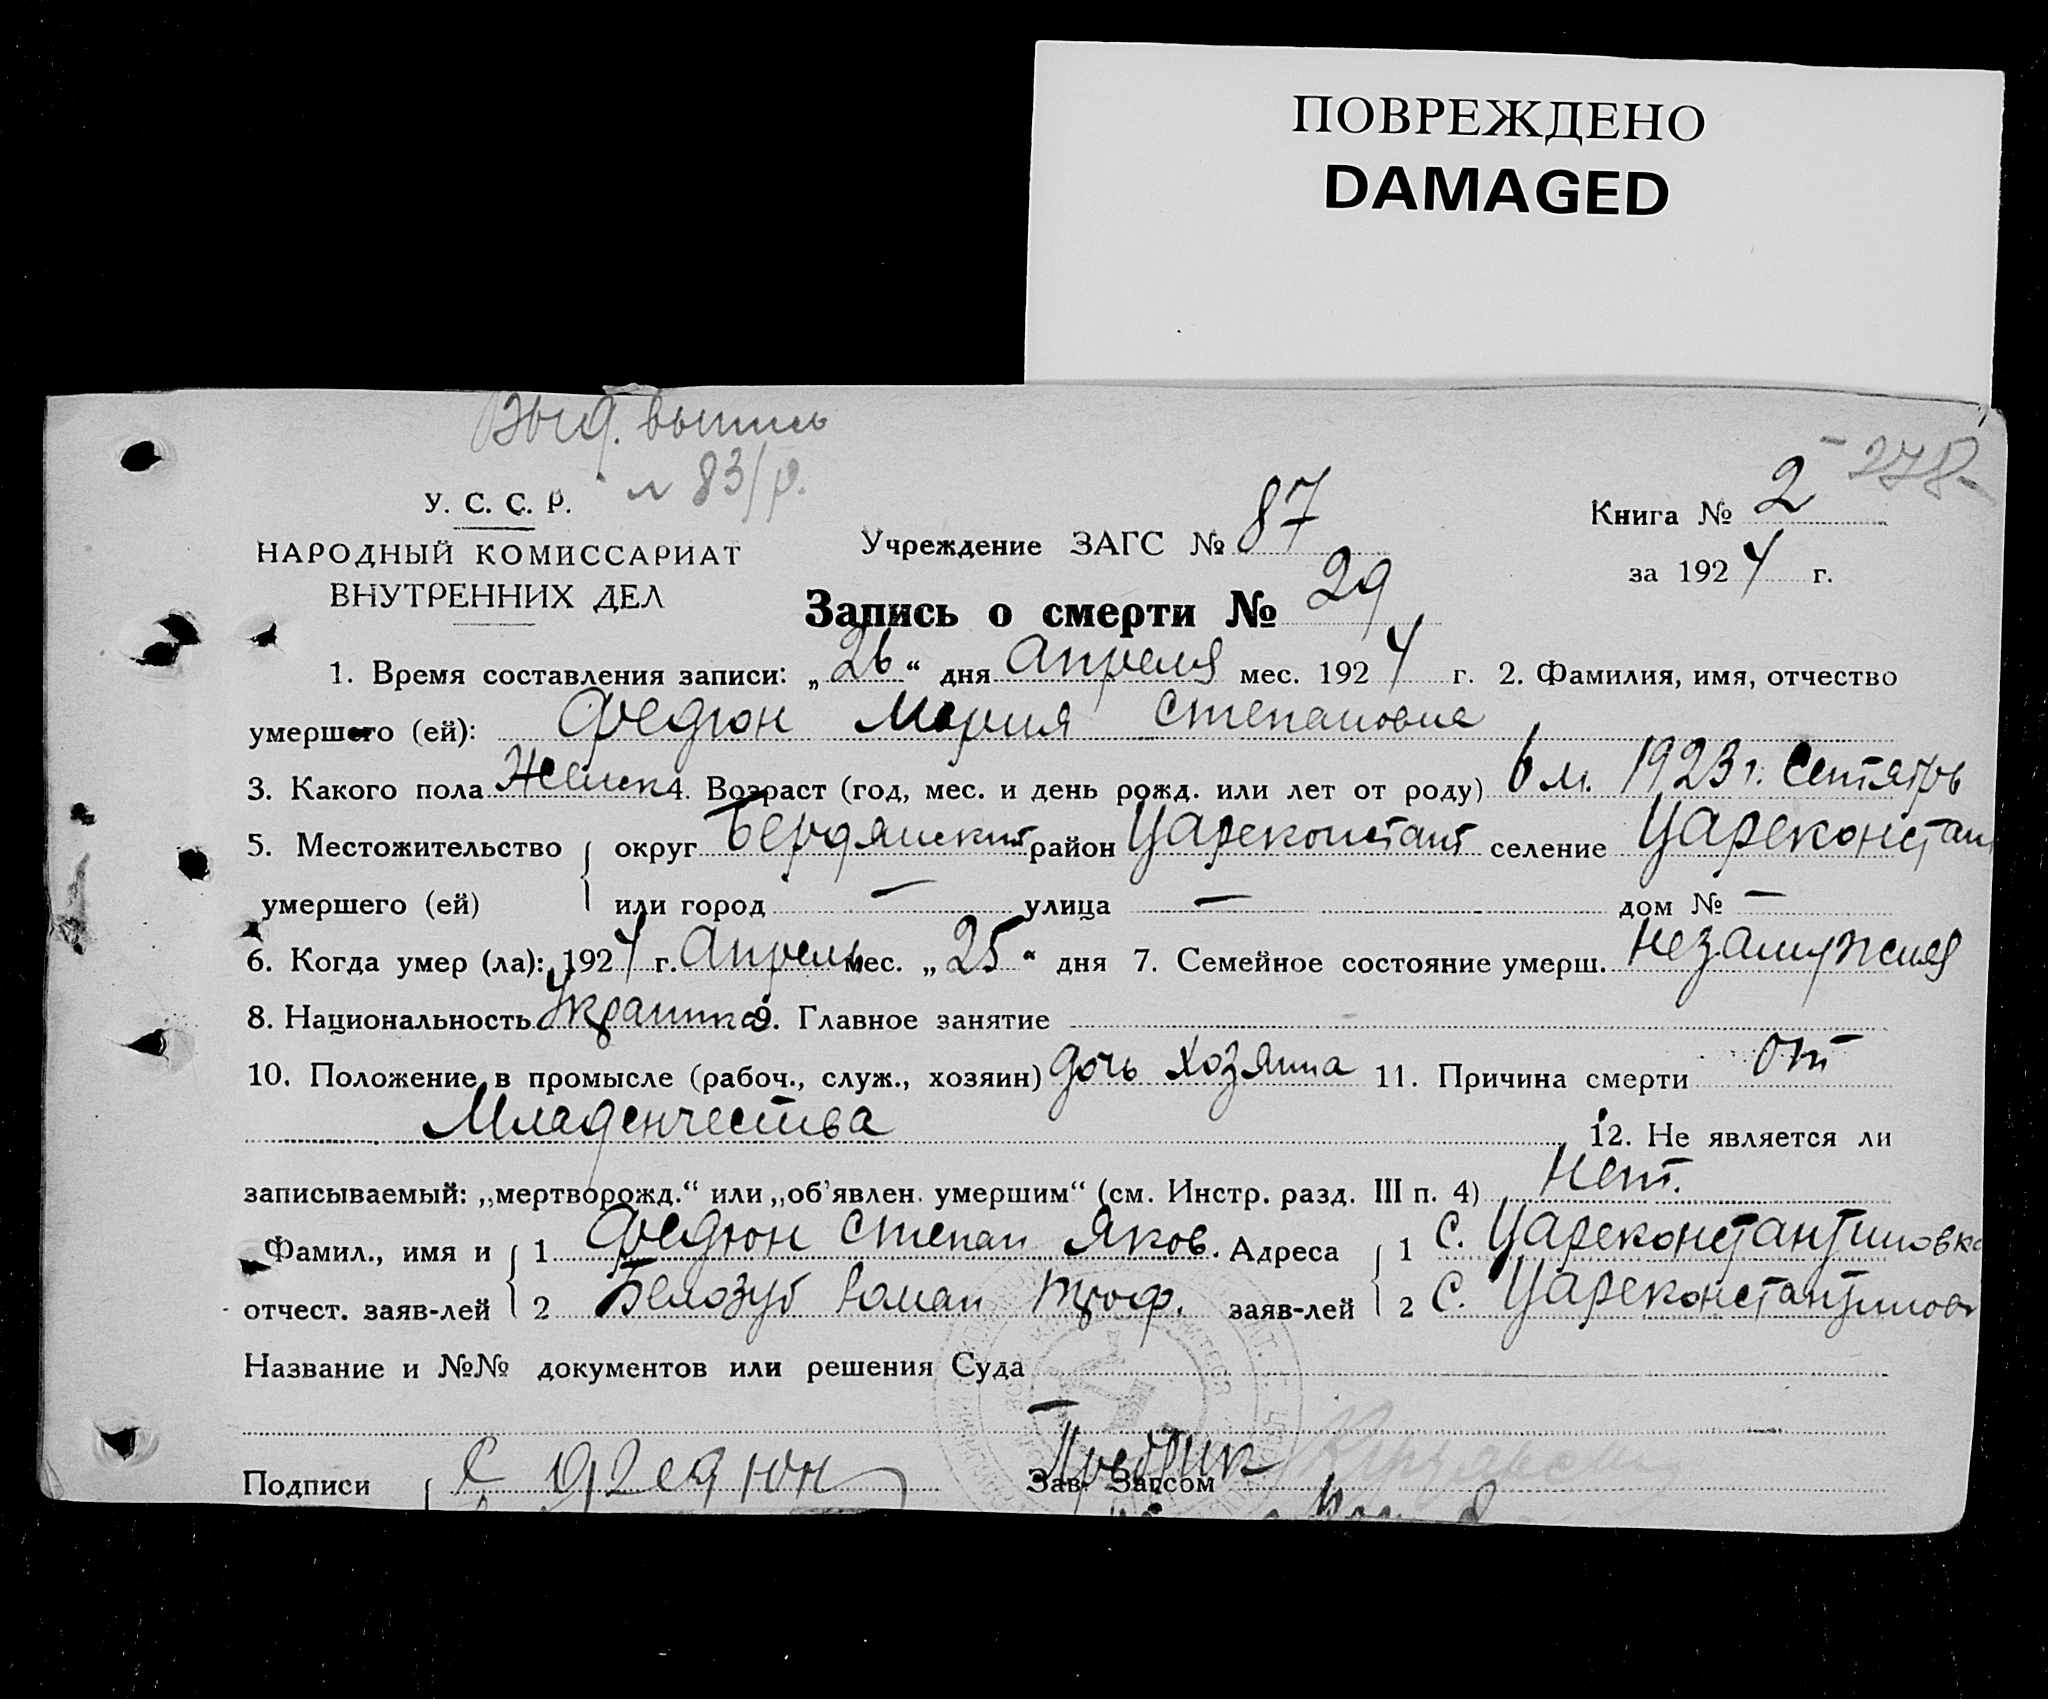 ПОВРЕЖДЕНО
DAMAGED
Выд. выпись
№ 83/р.
- 278 -
У. С. С. Р.
НАРОДНЫЙ КОМИССАРИАТ
ВНУТРЕННИХ ДЕЛ
Учреждение ЗАГС № 87
Книга № 2
за 1924 г.
Запись о смерти № 29
1. Время составления записи: „26“ дня Апреля мес. 1924 г. 2. Фамилия, имя, отчество
умершего (ей): Федюн Мария Степановна
3. Какого пола Женск 4. Возраст (год, мес. и день рожд. или лет от роду) 6 м. 1923 г. Сентябрь
5. Местожительство округ Бердянский район Цареконстант селение Цареконстан
умершего (ей) или город — улица — дом № —
6. Когда умер (ла): 1924 г. Апрель мес. „25“ дня 7. Семейное состояние умерш. незамужняя
8. Национальность Украинка 9. Главное занятие
10. Положение в промысле (рабоч., служ., хозяин) дочь хозяина 11. Причина смерти от
Младенчества 12. Не является ли
записываемый: „мертворожд.“ или „об'явлен. умершим“ (см. Инстр. разд. III п. 4) Нет.
Фамил., имя и 1 Федюн Степан Яков. Адреса 1 С. Цареконстантиновка
отчест. заяв-лей 2 Белозуб Роман Троф. заяв-лей 2 С. Цареконстантинов
Название и №№ документов или решения Суда
Подписи С Федюн Зав. Загсом